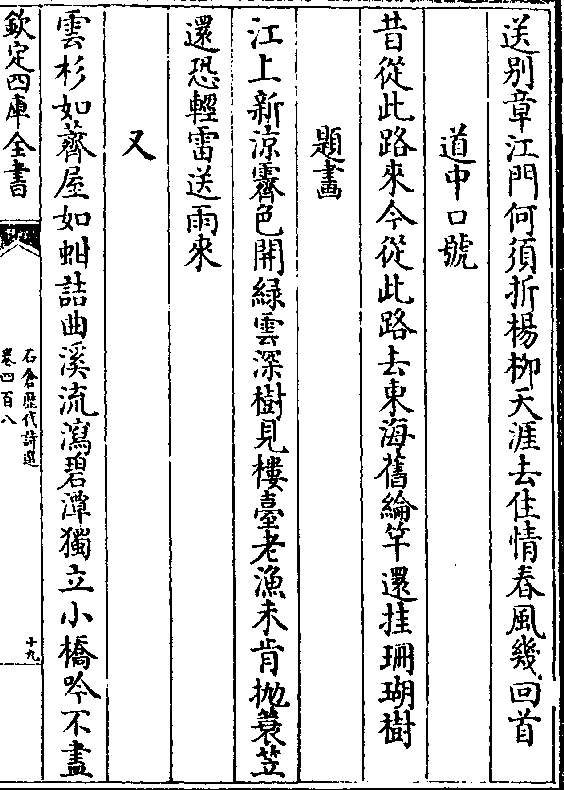 送别章江門何須折楊栁天涯去住情春風幾回首
道中口號
昔從此路來今從此路去東海舊綸竿還挂珊瑚樹
題畫
江上新涼霽色開緑雲深樹見樓臺老漁未肯抛蓑笠
還恐輕雷送雨來
又
雲杉如薺屋如蚶詰曲溪流瀉碧潭獨立小橋吟不盡
欽定四庫全書
石倉歴代詩選
卷四百八
十九